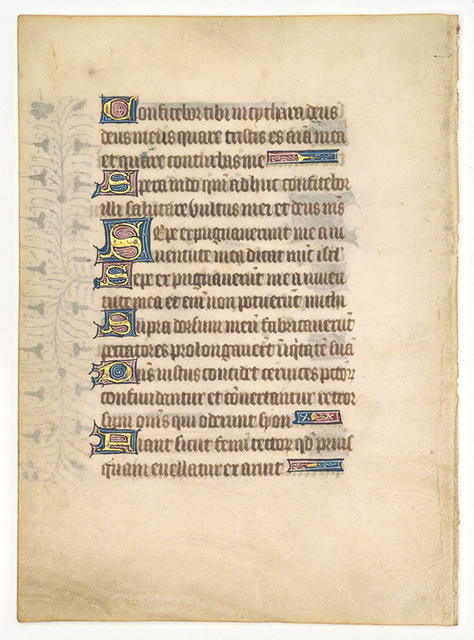 Confitebor tibi in cythara deus
deus meus quare tristis es aīa mea
et quare conturbas me
Spera in do quī adhuc confitebor
illi salutare vultus mei et deus mīs
Sepe expugnauerunt me a iu
uentute mea dicat nūc isrl
Sepe expugnauerūt me a iuuen
tute mea et eniī non potuerūt michi
Supra dorsum meū fabricauerūt
peccatores prolongauert īiqtatē suā
Dnīs iustus concidet ceruices pctōr
confundentur et cōuertantur retror
sum omīs qui oderunt syon
Fiant sicut fenū tector qd prius
quam euellatur exaruit